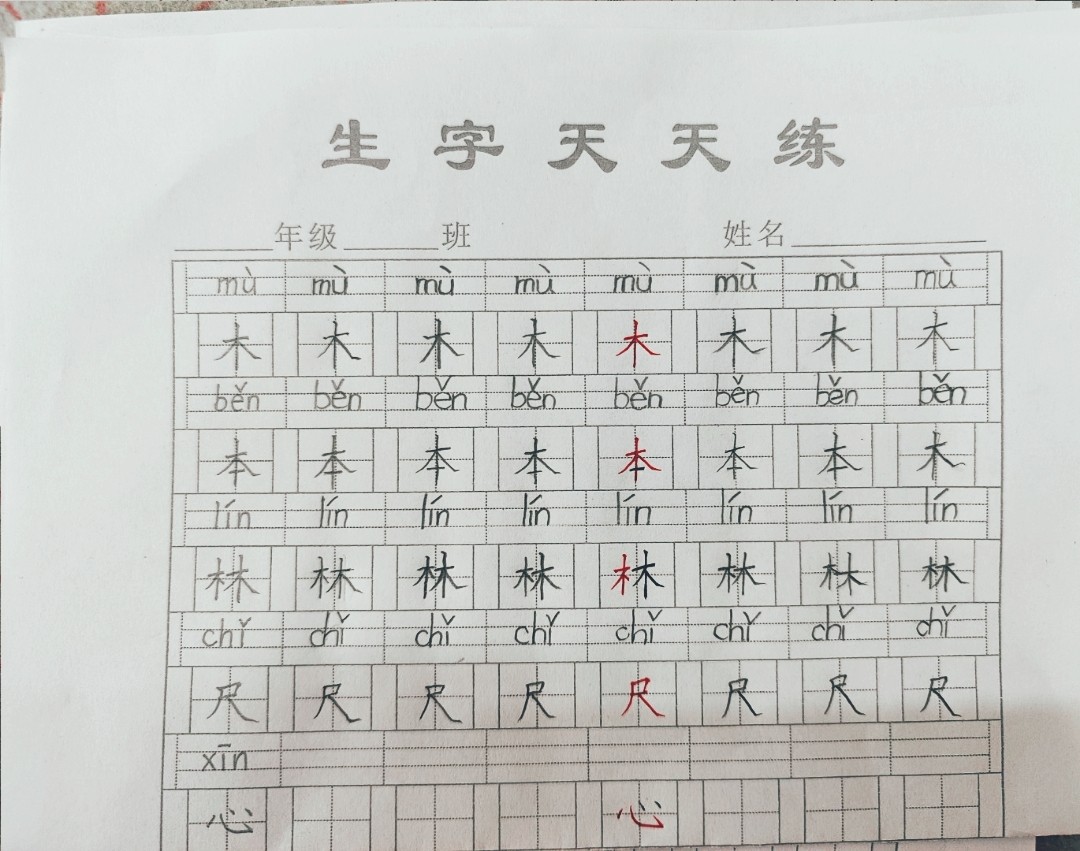 生字天天练
年级 班 姓名
mù mù mù mù mù mù mù mù
木 木 木 木 木 木 木 木
běn běn běn běn běn běn běn běn
本 本 本 本 本 本 本 木
lín lín lín lín lín lín lín lín
林 林 林 林 林 林 林 林
chǐ chǐ chǐ chǐ chǐ chǐ chǐ chǐ
尺 尺 尺 尺 尺 尺 尺 尺
xīn
心 心